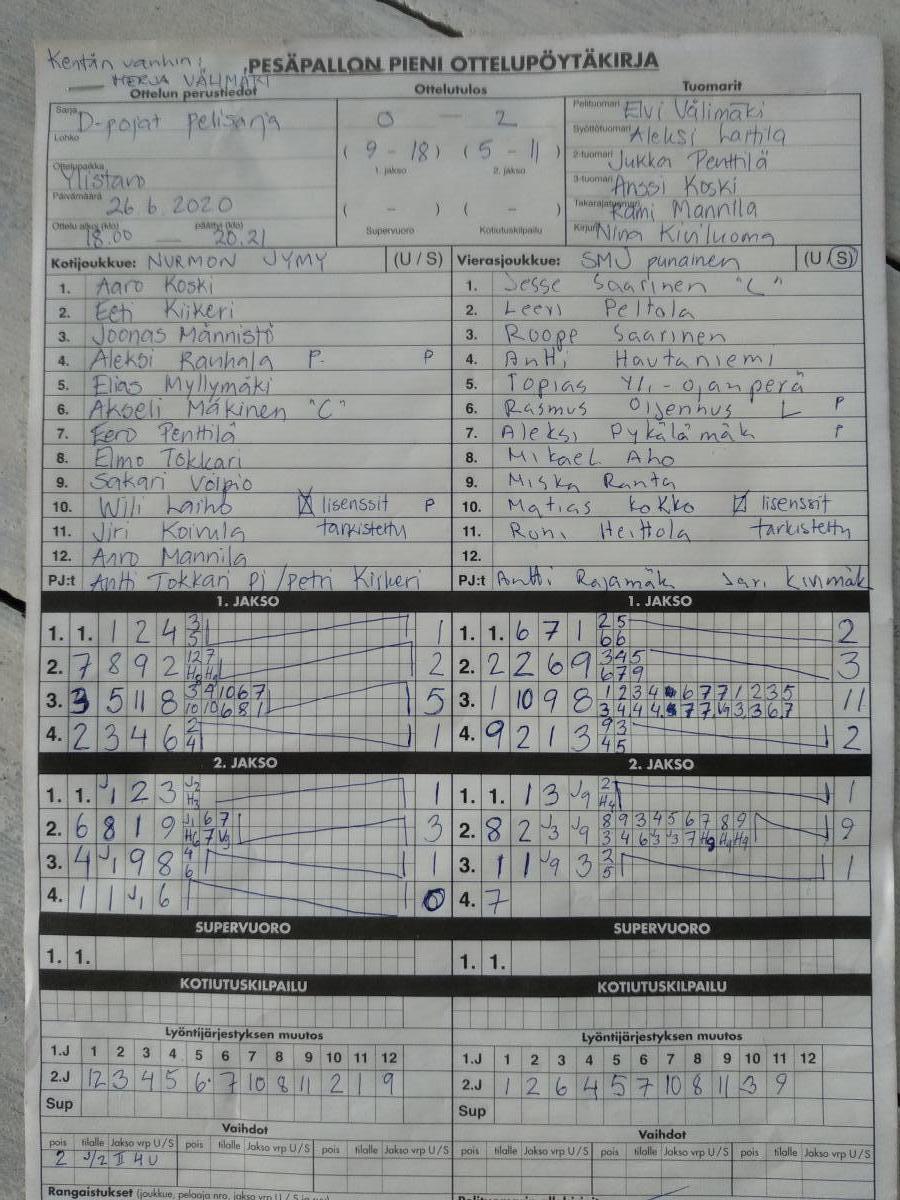 Kentän vanhin:
MERJA VÄLIMÄKI
PESÄPALLON PIENI OTTELUPÖYTÄKIRJA
Ottelun perustiedot Ottelutulos Tuomarit
Sarja D-pojat pelisarja 0 — 2 Pelituomari Elvi Välimäki
Lohko Syöttötuomari Aleksi Laitila
( 9 - 18 ) ( 5 - 11 ) 2-tuomari Jukka Penttilä
Ottelupaikka Ylistaro 1. jakso 2. jakso 3-tuomari Anssi Koski
Päivämäärä 26.6.2020 ( - ) ( - ) Takarajatuomari Rami Mannila
Ottelu alkoi (klo) 18.00 — päättyi (klo) 20.21 Supervuoro Kotiutuskilpailu Kirjuri Nina Kiviluoma
Kotijoukkue: NURMON JYMY (U / S) Vierasjoukkue: SMJ punainen (U / S)
1. Aaro Koski 1. Jesse Saarinen "L"
2. Eeti Kiikeri 2. Leevi Peltola
3. Joonas Männistö 3. Roope Saarinen
4. Aleksi Rauhala P. P 4. Antti Hautaniemi
5. Elias Myllymäki 5. Topias Yli-Ojanperä
6. Akseli Mäkinen "C" 6. Rasmus L P
7. Eero Penttilä 7. Aleksi Pykälämäk P
8. Elmo Tokkari 8. Mikael Aho
9. Sakari Volpio 9. Miska Ranta
10. Wili Laiho lisenssit P 10. Matias Kokko lisenssit
11. Jiri Koivula tarkistettu 11. Roni Heittola tarkistettu
12. Aaro Mannila 12.
PJ:t Antti Tokkari PJ / Petri Kiikeri PJ:t Antti Rajamäk Jari Kivimäk
1. JAKSO 1. JAKSO
1. 1. 1 2 4 3 1 1. 1. 6 7 1 2 5 2
5 6 6
2. 7 8 9 2 1 2 7 2 2. 2 2 6 9 3 4 5 3
6 7 9
3. 3 5 11 8 3 9 10 6 7 5 3. 1 10 9 8 1 2 3 4 6 7 7 1 2 3 5 11
10 10 6 8 1
4. 2 3 4 6 2 1 4. 9 2 1 3 9 3 2
4 4 5
2. JAKSO 2. JAKSO
1. 1. J1 2 3 J2 1 1. 1. 1 3 J9 2 1
H3 H4
2. 6 8 1 9 J1 6 7 3 2. 8 2 J3 J9 8 9 3 4 5 6 7 8 9 9
H6 7 J9 3 4 6 J3 J3 7 H9 H9 H9
3. 4 J1 9 8 4 1 3. 1 1 J9 3 3 1
6 5
4. 1 1 J1 6 0 4. 7
SUPERVUORO SUPERVUORO
1. 1. 1. 1.
KOTIUTUSKILPAILU KOTIUTUSKILPAILU
Lyöntijärjestyksen muutos Lyöntijärjestyksen muutos
1.J 1 2 3 4 5 6 7 8 9 10 11 12 1.J 1 2 3 4 5 6 7 8 9 10 11 12
2.J 12 3 4 5 6 7 10 8 11 2 1 9 2.J 1 2 6 4 5 7 10 8 11 3 9
Sup Sup
Vaihdot Vaihdot
pois tilalle Jakso vrp U/S pois tilalle Jakso vrp U/S pois tilalle Jakso vrp U/S pois tilalle Jakso vrp U/S pois tilalle Jakso vrp U/S pois tilalle Jakso vrp U/S
2 J2 II 4 U
Rangaistukset (joukkue, pelaaja nro, jakso vrp U / S ja syy)